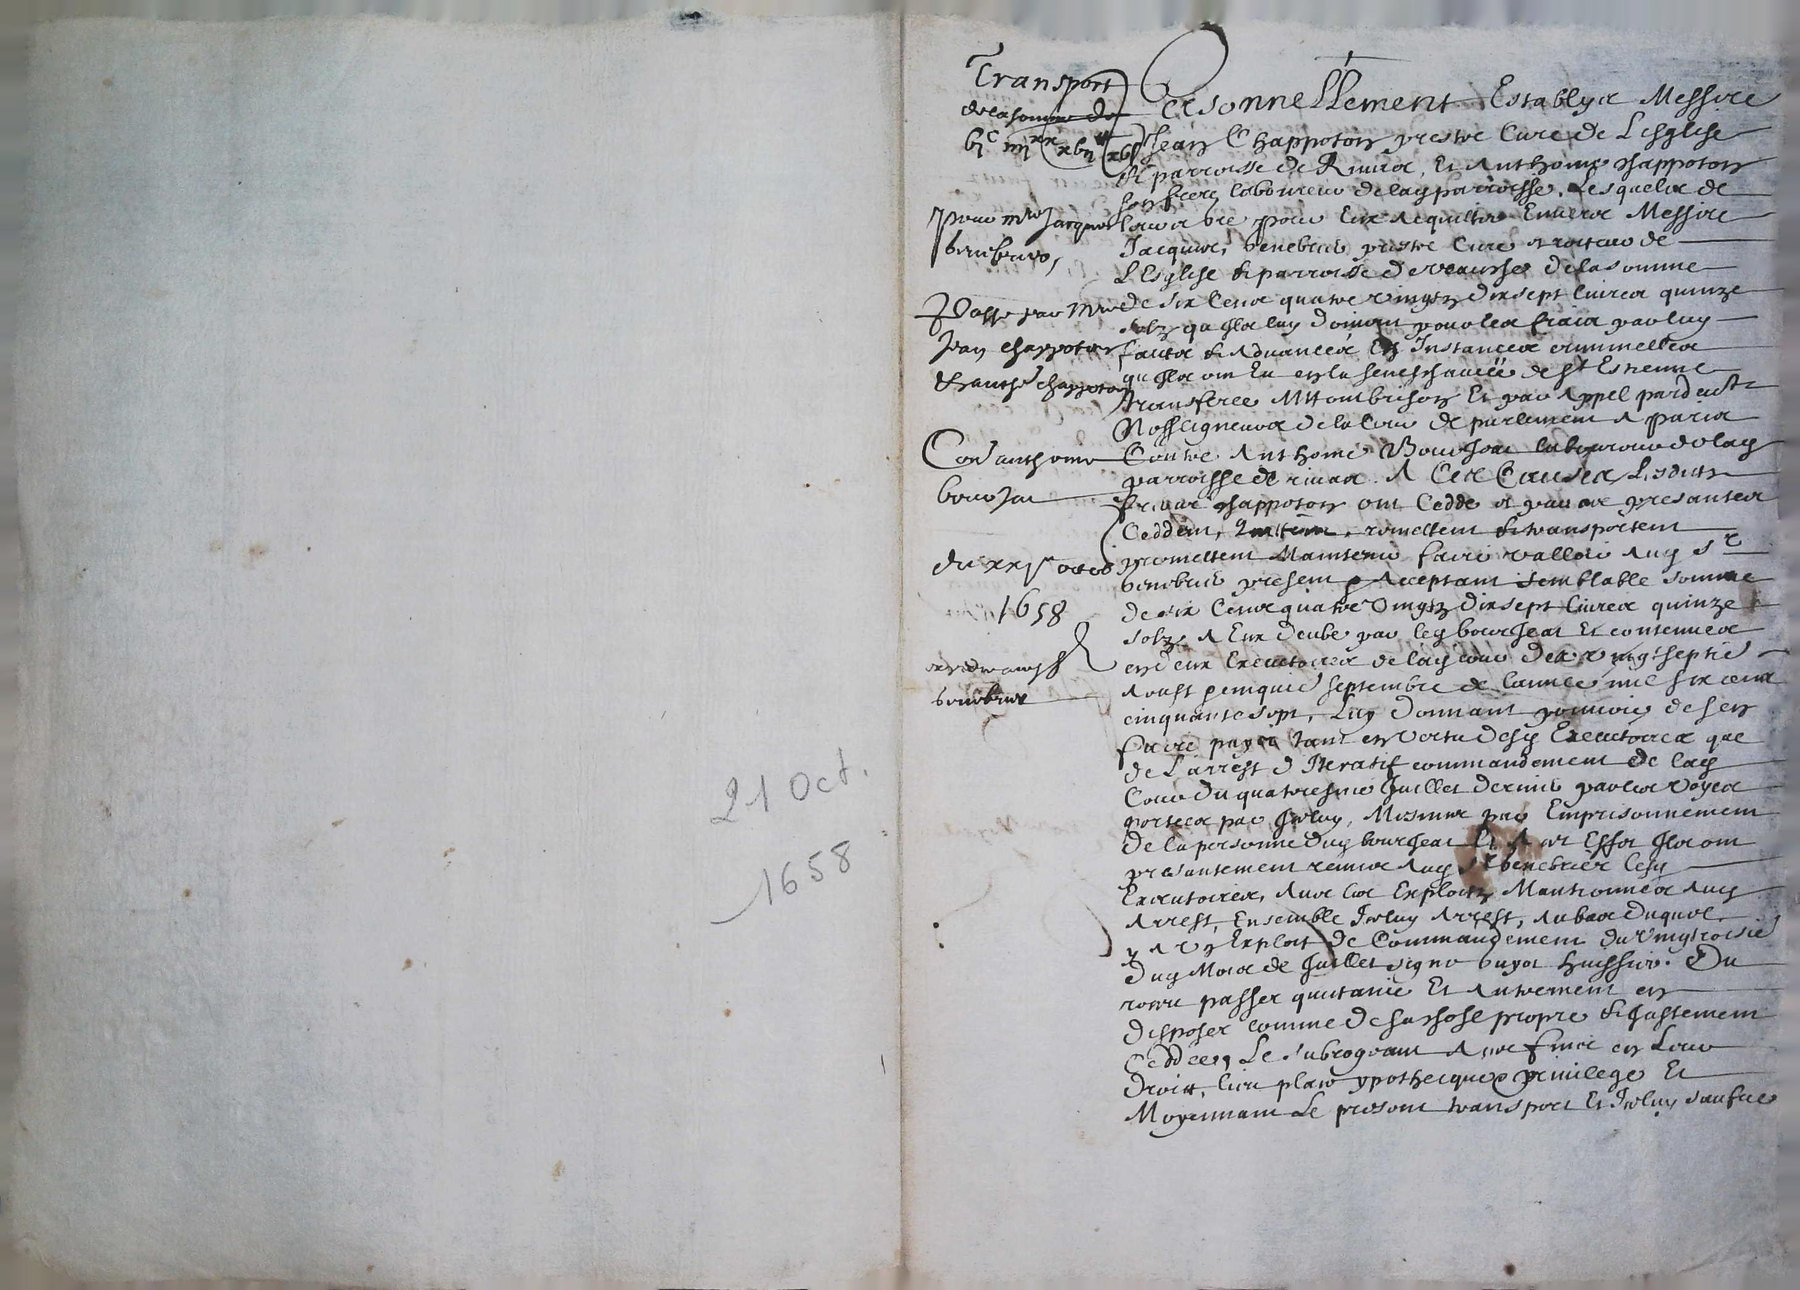 21 Oct.
1658
Transport
de la somme de
vi^c iiii^xx xvii ^lt xv ^s
Pour m^re Jacques
benebrier
Passé par M^re
Jean chappoton
& anth^e chappoton
Con^e anthoine
bourjat
du xxj^e octob
1658
benebrier
Personnellement Establys Messire
Jean Chappoton prestre Curé de L'esglise
& parroisse de Rivas, Et Anthoine chappoton
son frere laboureur de lad parroisse, Lesquelz de
leur gre pour Eux Acquitter Envers Messire
Jacques benebrier prestre Curé et recteur de
L'Esglise & parroisse de veauche de la somme
de six Cens quatre vingtz dix sept livres quinze
solz qu'Ilz luy doivent pour les frais par luy
faitz & Advancés En Instances criminelles
qu'Ilz ont Eu en la seneschaucée de S^t Estienne
transferee A Montbrison Et par Appel pardevt
Nosseigneurs de la Cour de parlement A Paris
Contre Anthoine Bourjat laboureur de lad
parroisse de rivas. A Ces Causes Lesditz
freres chappoton ont Ceddé et par ces presantes
Ceddent, quittent, remettent & transportent
promettent Maintenir faire valloir Aud S^r
benebrier present & Acceptant semblable somme
de six Cens quatre vingtz dix sept livres quinze
solz A Eux deube par led bourjat Et contenues
en deux Executoires de lad cour des vingt septie
Aoust & septembre de l'année mil six cens
cinquante sept, Luy donnant pouvoir de s'en
faire payer tant en vertu desd Executoires que
de L'arrest d'Iteratif commandement de lad
Cour du quatriesme Juillet dernier par les voyes
portees par Icelluy, Mesmes par Emprisonnement
de la personne dud bourjat Et A ces Effetz Ilz ont
presantement remis Aud S^r benebrier lesd
Executoires, Avec les Exploitz Mentionnés Aud
Arrest, Ensemble Icelluy Arrest, Au bas duquel
y A un Exploit de Commandement du vingtroisie
dud Mois de Juillet signé buyet huissier. Du
receu passer quittance Et Autrement en
disposer comme de sa chose propre & Justement
Ceddée, Le subrogeant A ces fins en Leur
droit, lieu place ypotheque & privilege Et
Moyennant Le present transport Et Icelluy sans fue